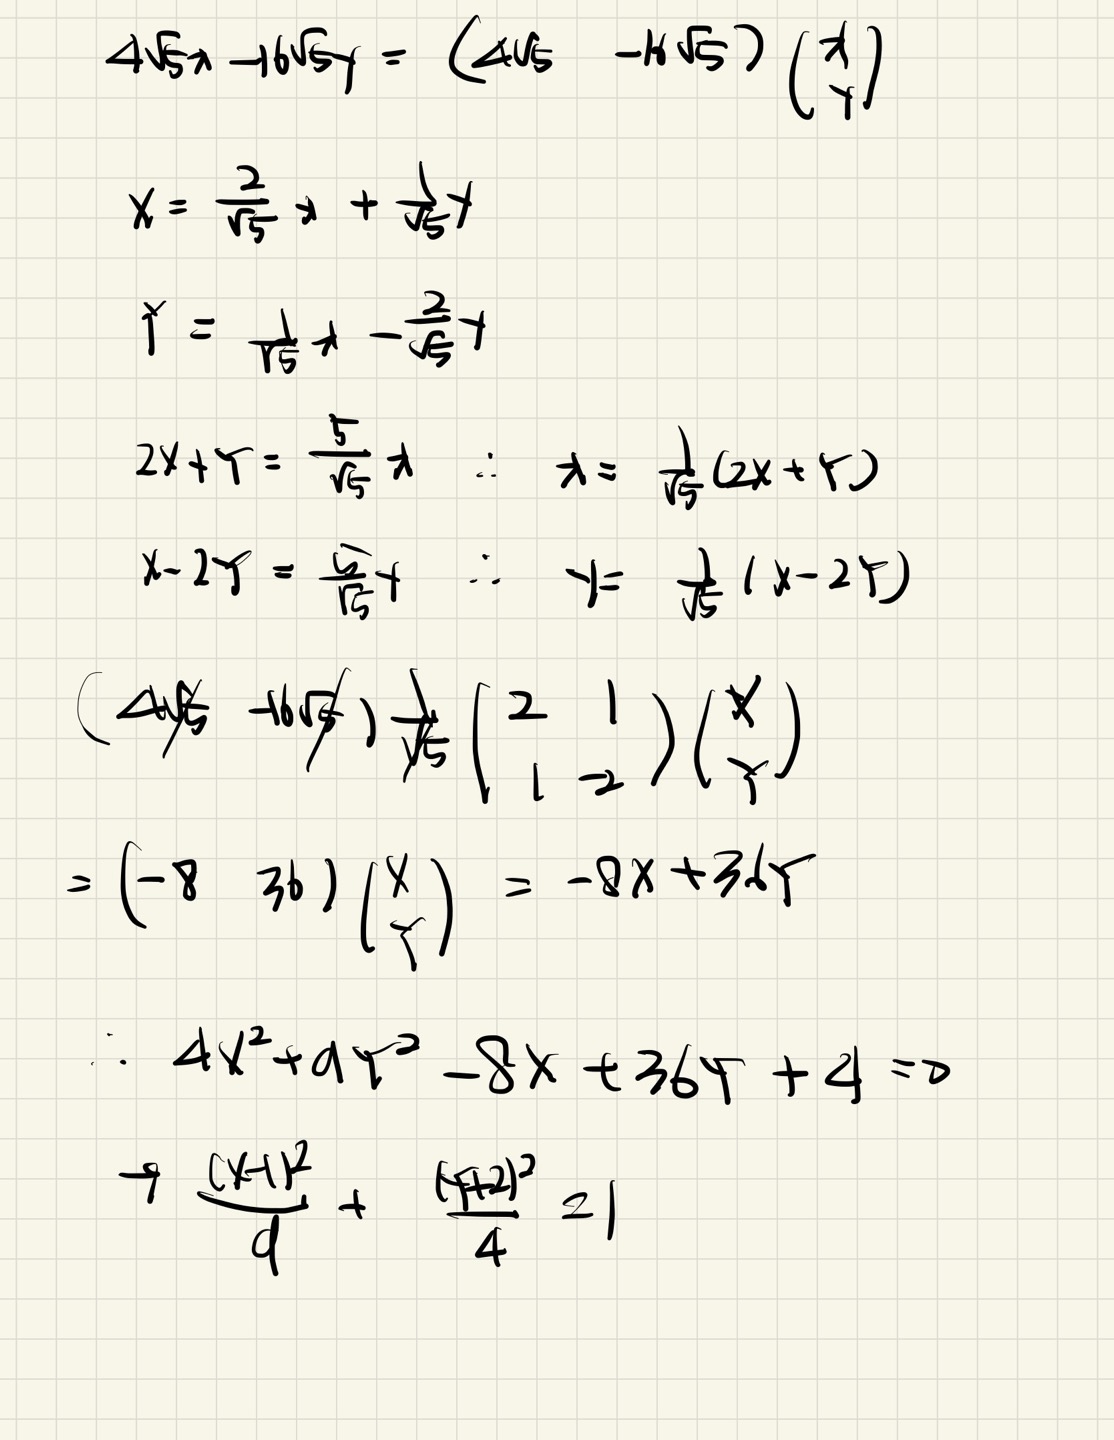 4√5x -16√5y = (4√5 -16√5) (x y)
X = 2/√5 x + 1/√5 y
Y = 1/√5 x - 2/√5 y
2X+Y = 5/√5 x ∴ x = 1/√5 (2X+Y)
X-2Y = 5/√5 y ∴ y = 1/√5 (X-2Y)
(4√5 -16√5) 1/√5 (2 1 1 -2) (X Y)
= (-8 36) (X Y) = -8X+36Y
∴ 4X²+9Y² -8X +36Y +4 =0
→ (X-1)²/9 + (Y+2)²/4 =1